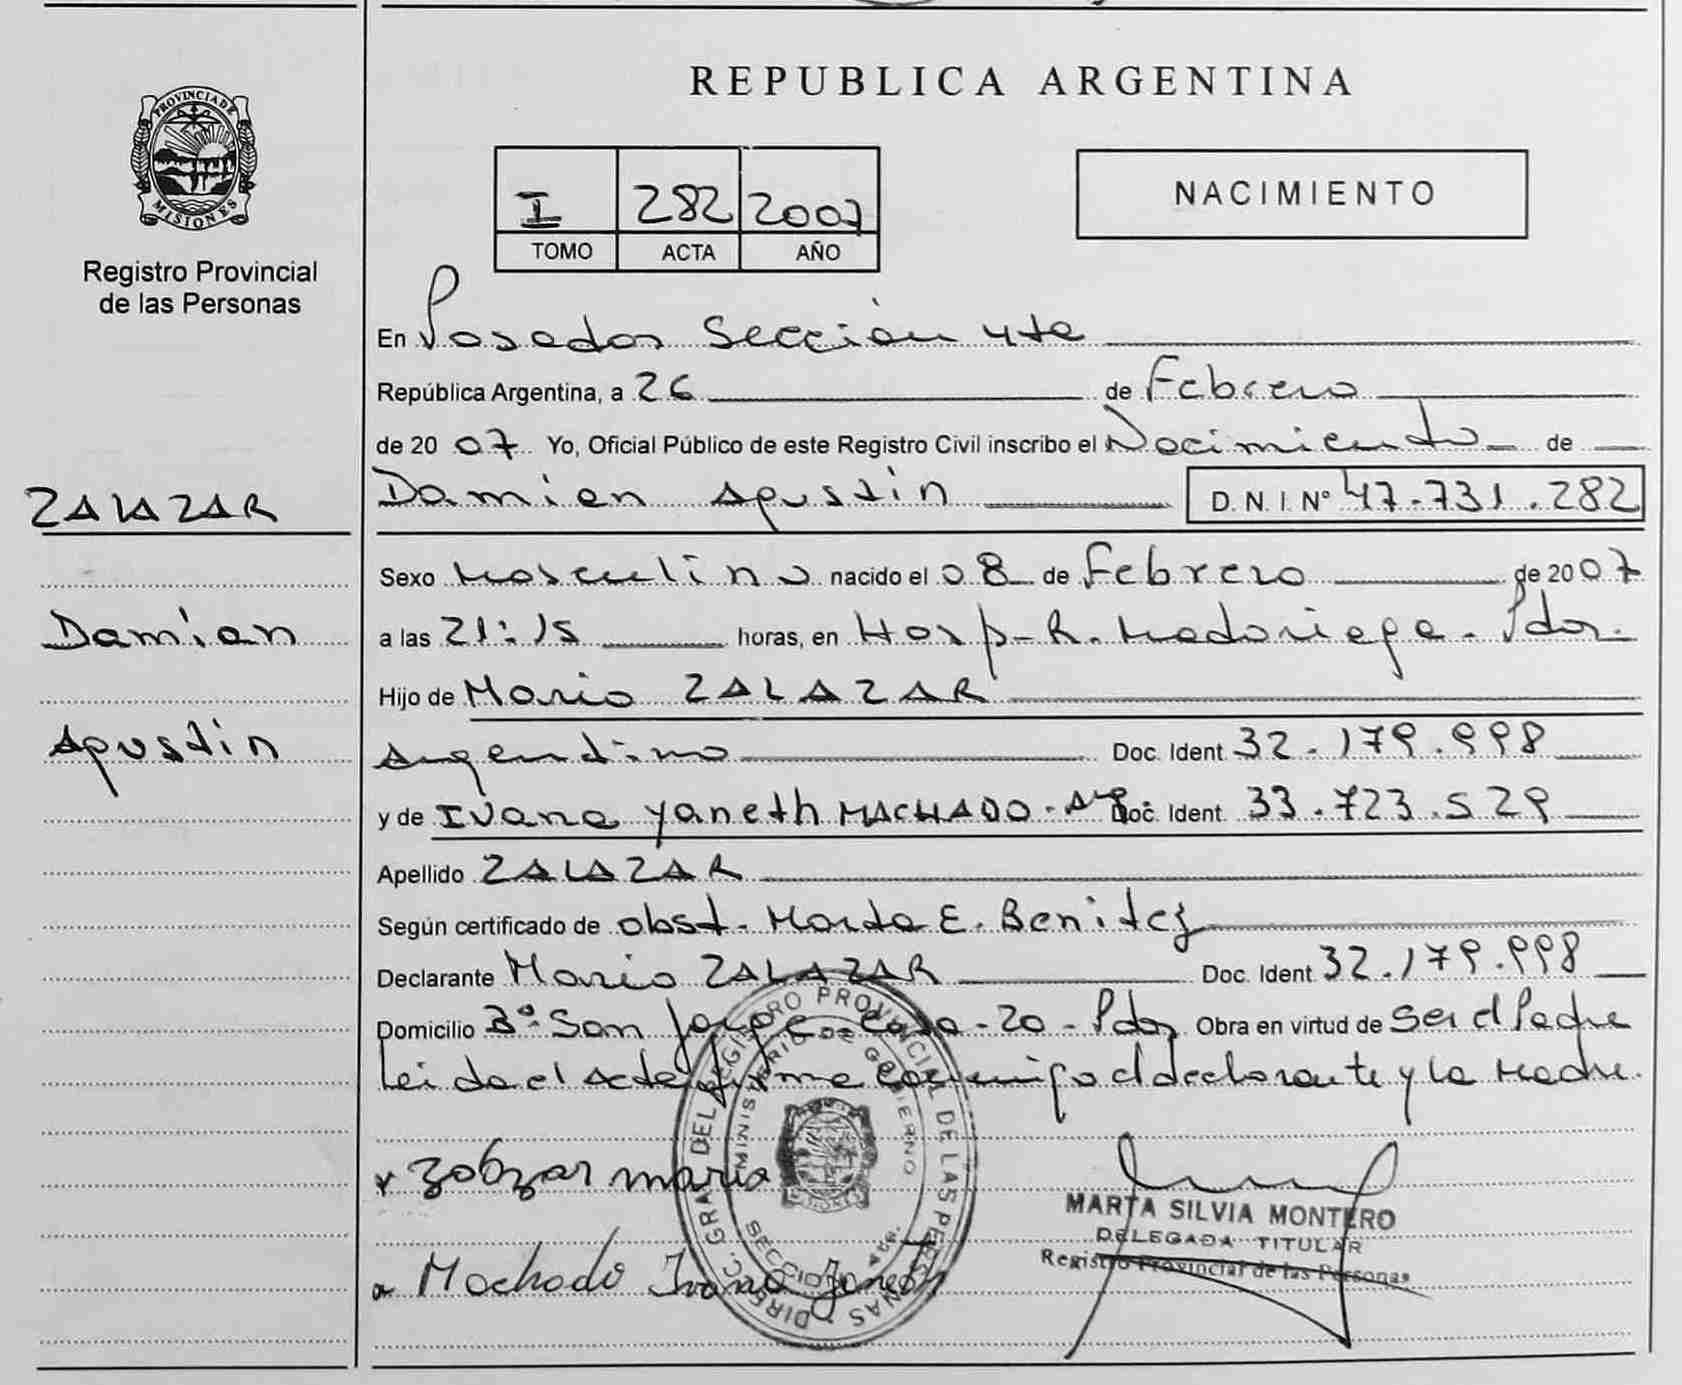 REPUBLICA ARGENTINA
PROVINCIA DE MISIONES
Registro Provincial
de las Personas
I 282 2007
TOMO ACTA AÑO
NACIMIENTO
En Posadas Sección 4ta
República Argentina, a 26 de Febrero
de 20 07 Yo, Oficial Público de este Registro Civil inscribo el Nacimiento de
ZALAZAR
Damian Agustin D.N.I. Nº 47.731.282
Sexo Masculino nacido el 08 de Febrero de 2007
Damian
a las 21:15 horas, en Hosp. R. Madariaga - Pdas.
Hijo de Mario ZALAZAR
Agustin
Argentino Doc. Ident. 32.179.998
y de Ivana Yaneth MACHADO - Arg. Doc. Ident. 33.723.529
Apellido ZALAZAR
Según certificado de obst. Marta E. Benitez
Declarante Mario ZALAZAR Doc. Ident. 32.179.998
Domicilio Bº San Jorge - Casa - 20 - Pdas Obra en virtud de ser el Padre
Leida el Acta firma conmigo el declarante y la Madre.
DIREC. GRAL. DEL REGISTRO PROVINCIAL DE LAS PERSONAS
MINISTERIO DE GOBIERNO
SECCION 4ta.
Zalazar mario
MARTA SILVIA MONTERO
DELEGADA TITULAR
Registro Provincial de las Personas
Machado Ivana Janeth